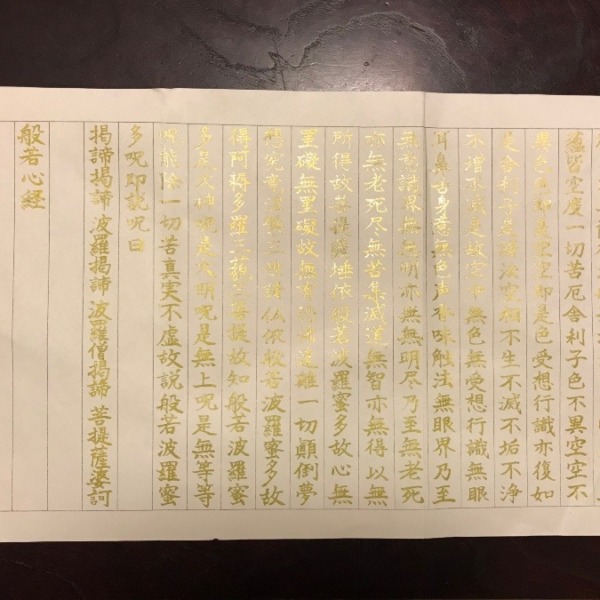 蘊皆空度一切苦厄舎利子色不異空空不
異色色即是空空即是色受想行識亦復如
是舎利子是諸法空相不生不滅不垢不浄
不増不減是故空中無色無受想行識無眼
耳鼻舌身意無色声香味触法無眼界乃至
無意識界無無明亦無無明尽乃至無老死
亦無老死尽無苦集滅道無智亦無得以無
所得故菩提薩埵依般若波羅蜜多故心無
罣礙無罣礙故無有恐怖遠離一切顛倒夢
想究竟涅槃三世諸仏依般若波羅蜜多故
得阿耨多羅三藐三菩提故知般若波羅蜜
多是大神呪是大明呪是無上呪是無等等
呪能除一切苦真実不虚故説般若波羅蜜
多呪即説呪曰
掲諦掲諦 波羅掲諦 波羅僧掲諦 菩提薩婆訶
般若心経